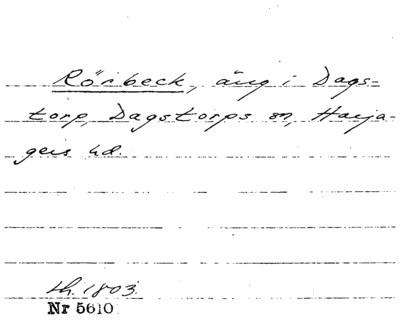 Rörbeck, äng i Dags-
torp, Dagstorps sn, Harja-
gers hd.
lh. 1803.
Nr 5610